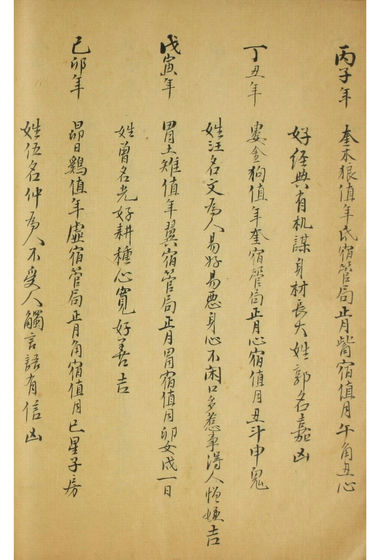 丙子年 奎木狼值年氐宿管局正月觜宿值月午角丑心
好經典有机謀身材長大姓郭名嘉凶
丁丑年 婁金狗值年奎宿管局正月心宿值月丑斗申鬼
姓汪名文為人易好易惡身心不闲口多惹事得人憎嫌吉
戊寅年 胃土雉值年翼宿管局正月胃宿值月卯女戌一日
姓曾名光好耕種心寬好善吉
己卯年 昴日鷄值年虛宿管局正月角宿值月巳星子房
姓伍名仲為人不受人觸言語有信凶